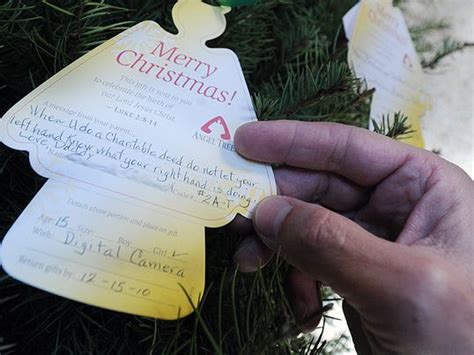 Merry
Christmas!
This gift is sent to you
to celebrate the birth of
our Lord Jesus Christ.
— LUKE 2:8-14
A message from your parent:
ANGEL TREE
When U do a Charitable deed do not let your
left hand know what your right hand is doing.
Love, Daddy
#2A-T
Detach above portion and place on gift.
Age: 15 Size: Boy Girl ✓
Wish: Digital Camera
Return gifts by: 12-15-10